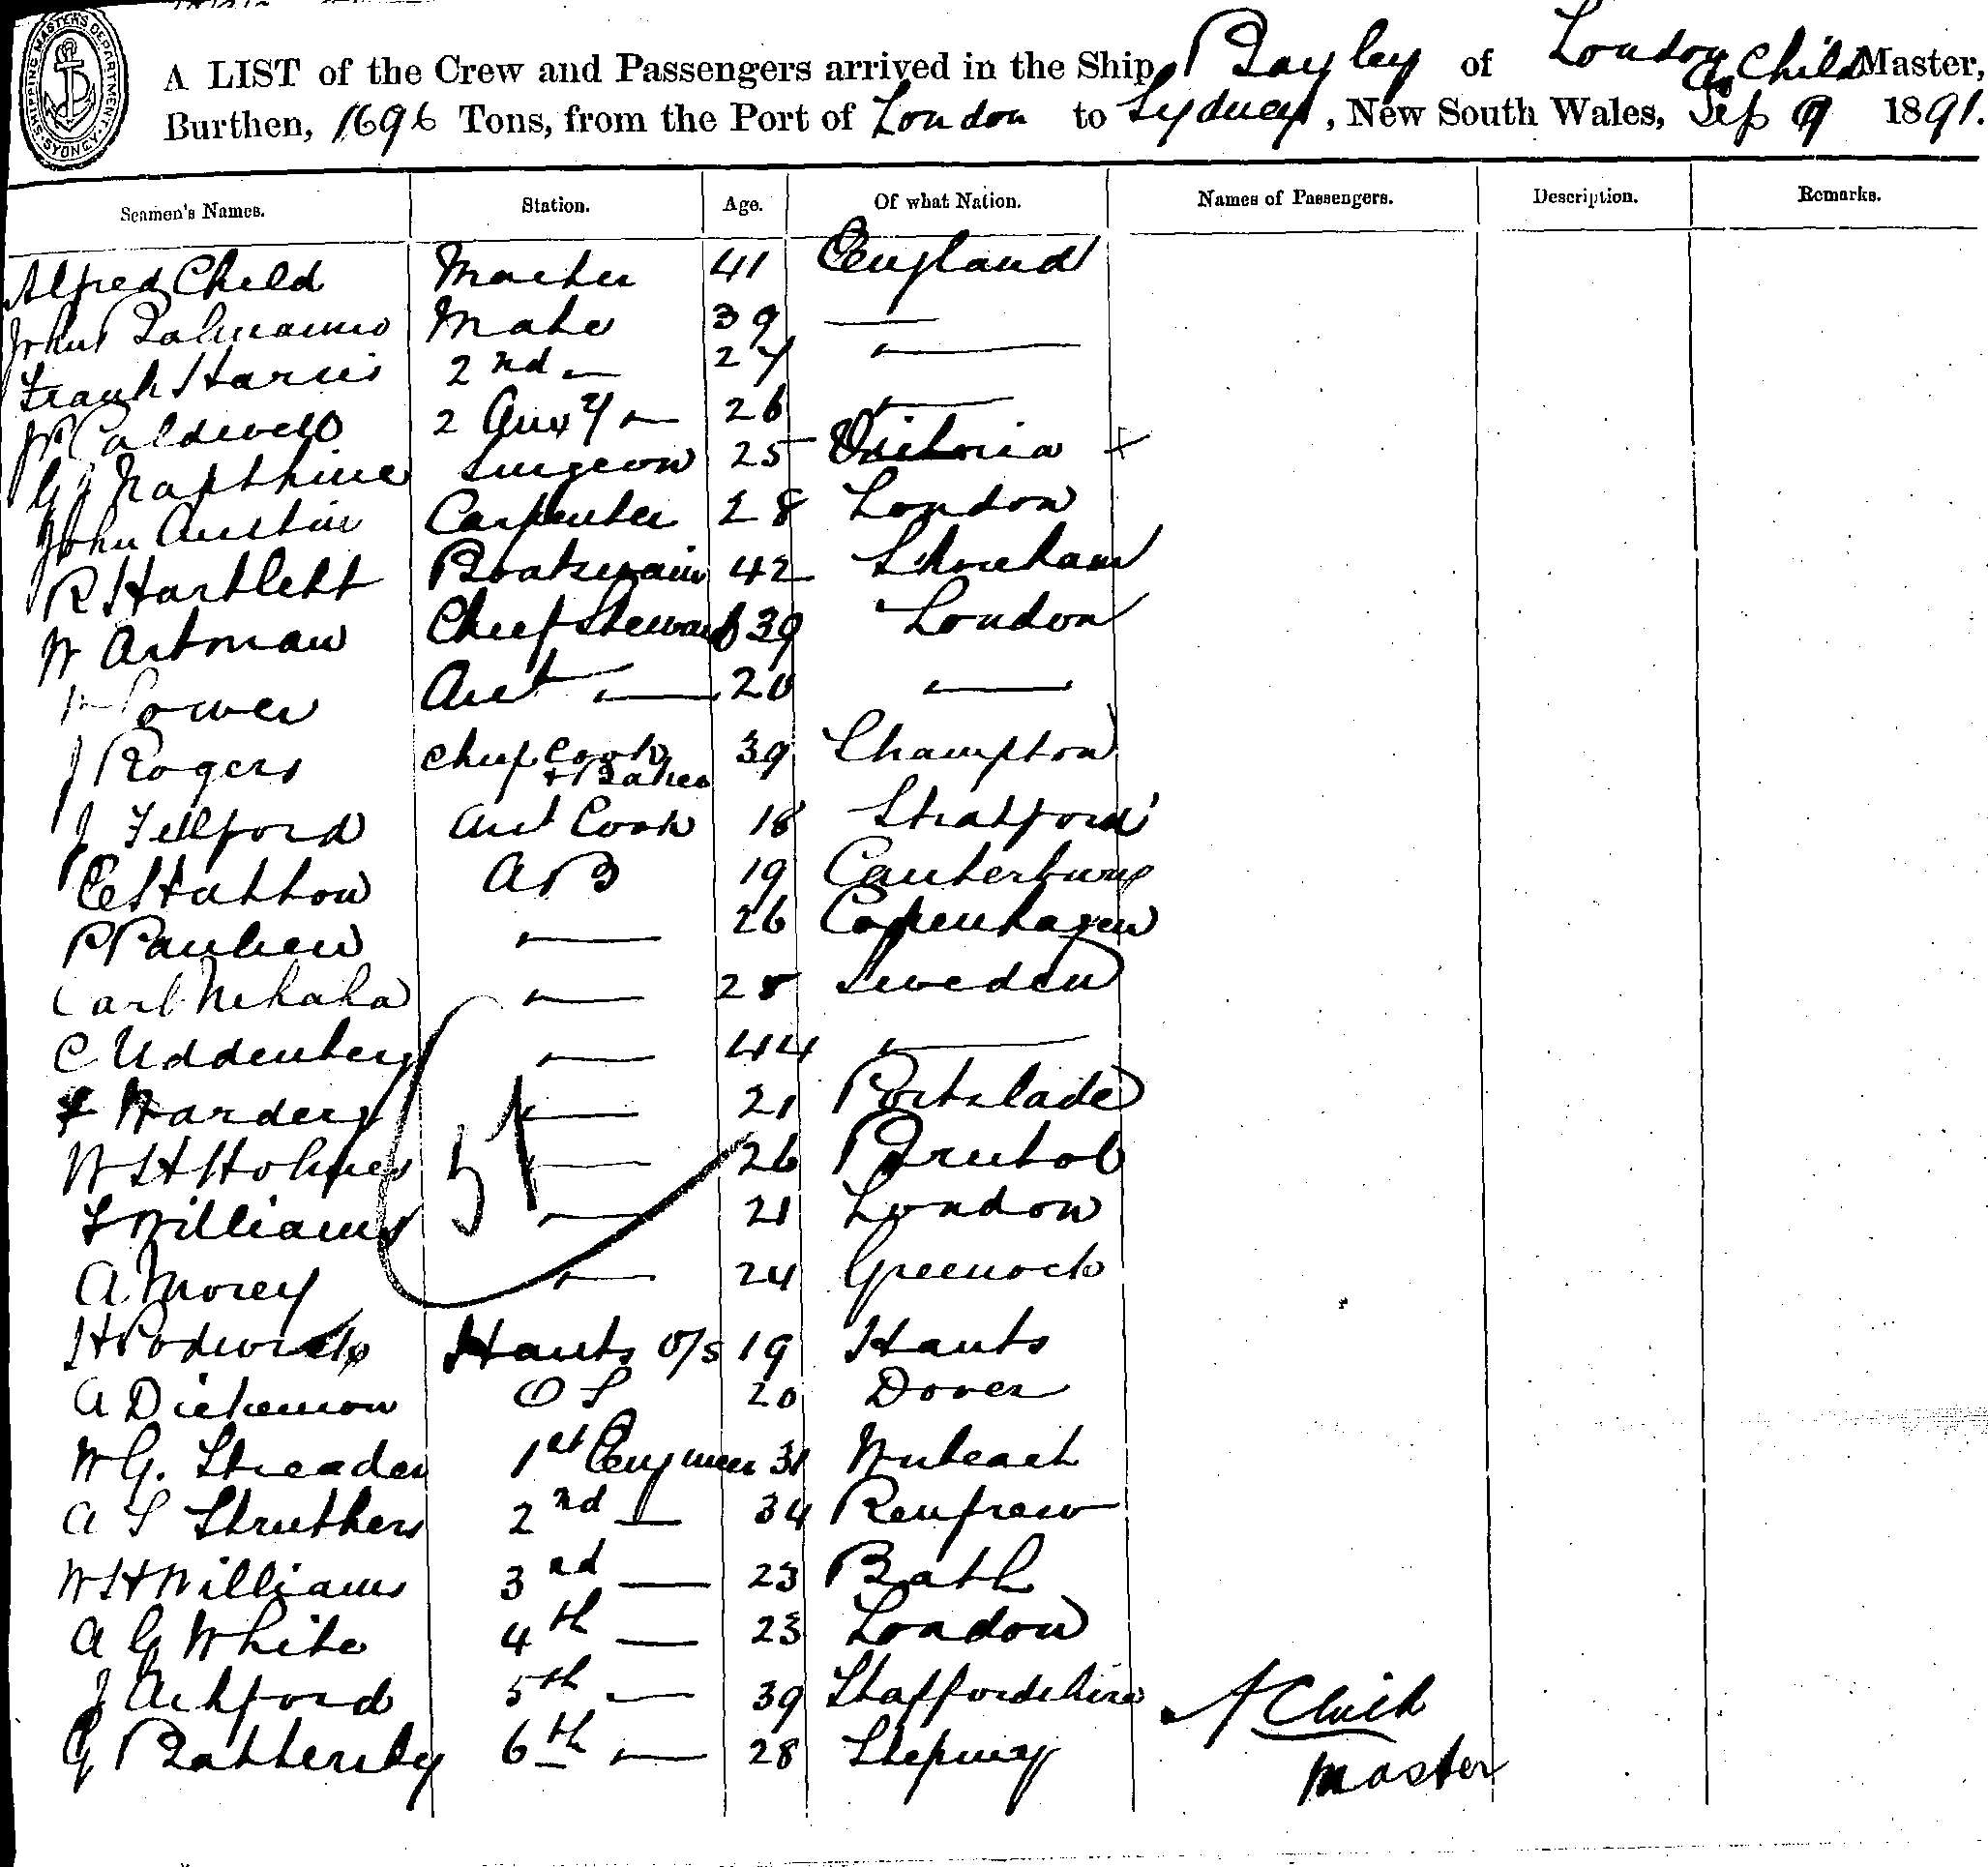 SHIPPING MASTER'S DEPARTMENT SYDNEY
A LIST of the Crew and Passengers arrived in the Ship Bayley of London A Child Master,
Burthen, 1696 Tons, from the Port of London to Sydney, New South Wales, Sep 9 1891.
Seamen's Names. Station. Age. Of what Nation. Names of Passengers. Description. Remarks.
Alfred Child Master 41 England
John Mate 39 —
Frank Harris 2nd — 27 —
W Caldwell 2 Auxy — 26 —
G J Napthine Surgeon 25 Victoria +
John Austin Carpenter 28 London
R Hartlebt Boatswain 42 Shoreham
W Artman Chief Steward 39 London
Power Asst — 20 —
J Rogers Chief Cook + Baker 39 Shampton
J Tellford Asst Cook 18 Stratford
E Hatton AB 19 Canterbury
P Paulsen — 26 Copenhagen
Carl — 28 Sweden
C Uddenberg — 44 —
F Harding — 21 Portslade
W H Holmes — 26 Bristol
51
F Williams — 21 London
A Morey — 24 Greenock
H Podwick Hants O/S 19 Hants
A Dickenson O S 20 Dover
W G. Streader 1st Engineer 31 Wisbeach
A S Struthers 2nd — 34 Renfrew
W H Williams 3rd — 23 Bath
A G White 4th — 23 London
J Ashford 5th — 39 Staffordshire
G Battersby 6th — 28 Stepney
A Child
Master